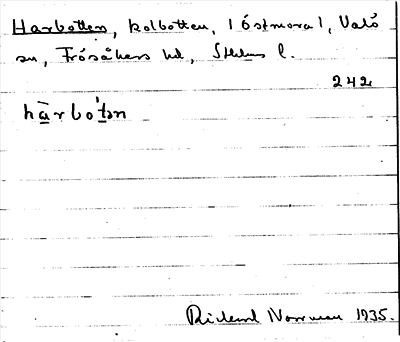 Harbotten, kolbotten, i Östmora l, Valö
sn, Frösåkers hd, Sthlms l.
242
hàrbo'tən
Rickard Norrman 1935.